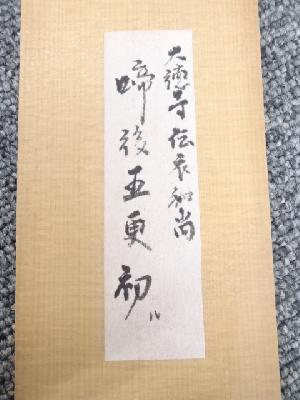 大徳寺伝衣和尚
啼後五更初